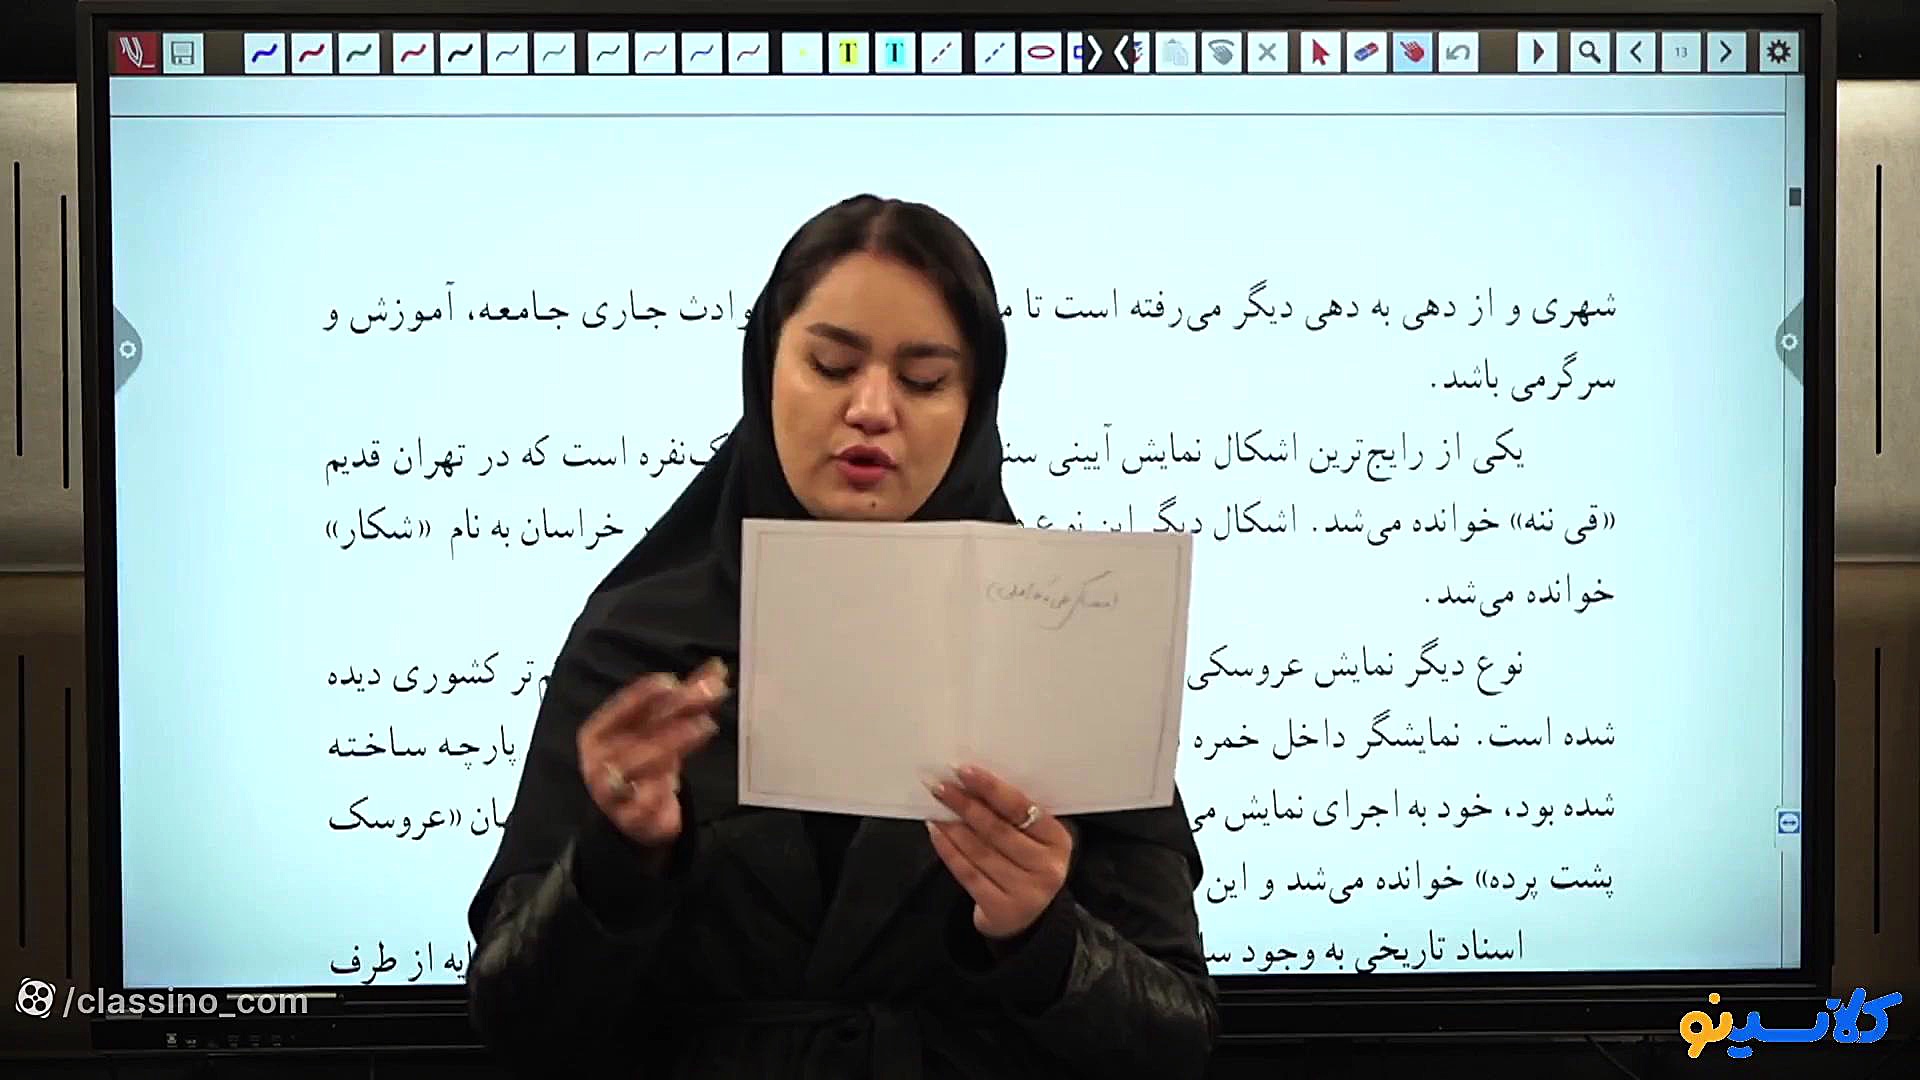 13
شهری و از دهی به دهی دیگر می‌رفته است تا جاری جامعه، آموزش و
سرگرمی باشد.
یکی از رایج‌ترین اشکال نمایش آیینی است که در تهران قدیم
«قی ننه» خوانده می‌شد. اشکال دیگر این نوع خراسان به نام «شکار»
خوانده می‌شد.
نوع دیگر نمایش عروسکی کشوری دیده
شده است. نمایشگر داخل خمره پارچه ساخته
شده بود، خود به اجرای نمایش «عروسک
پشت پرده» خوانده می‌شد و این
اسناد تاریخی به وجود از طرف
/classino_com
کلاسینو